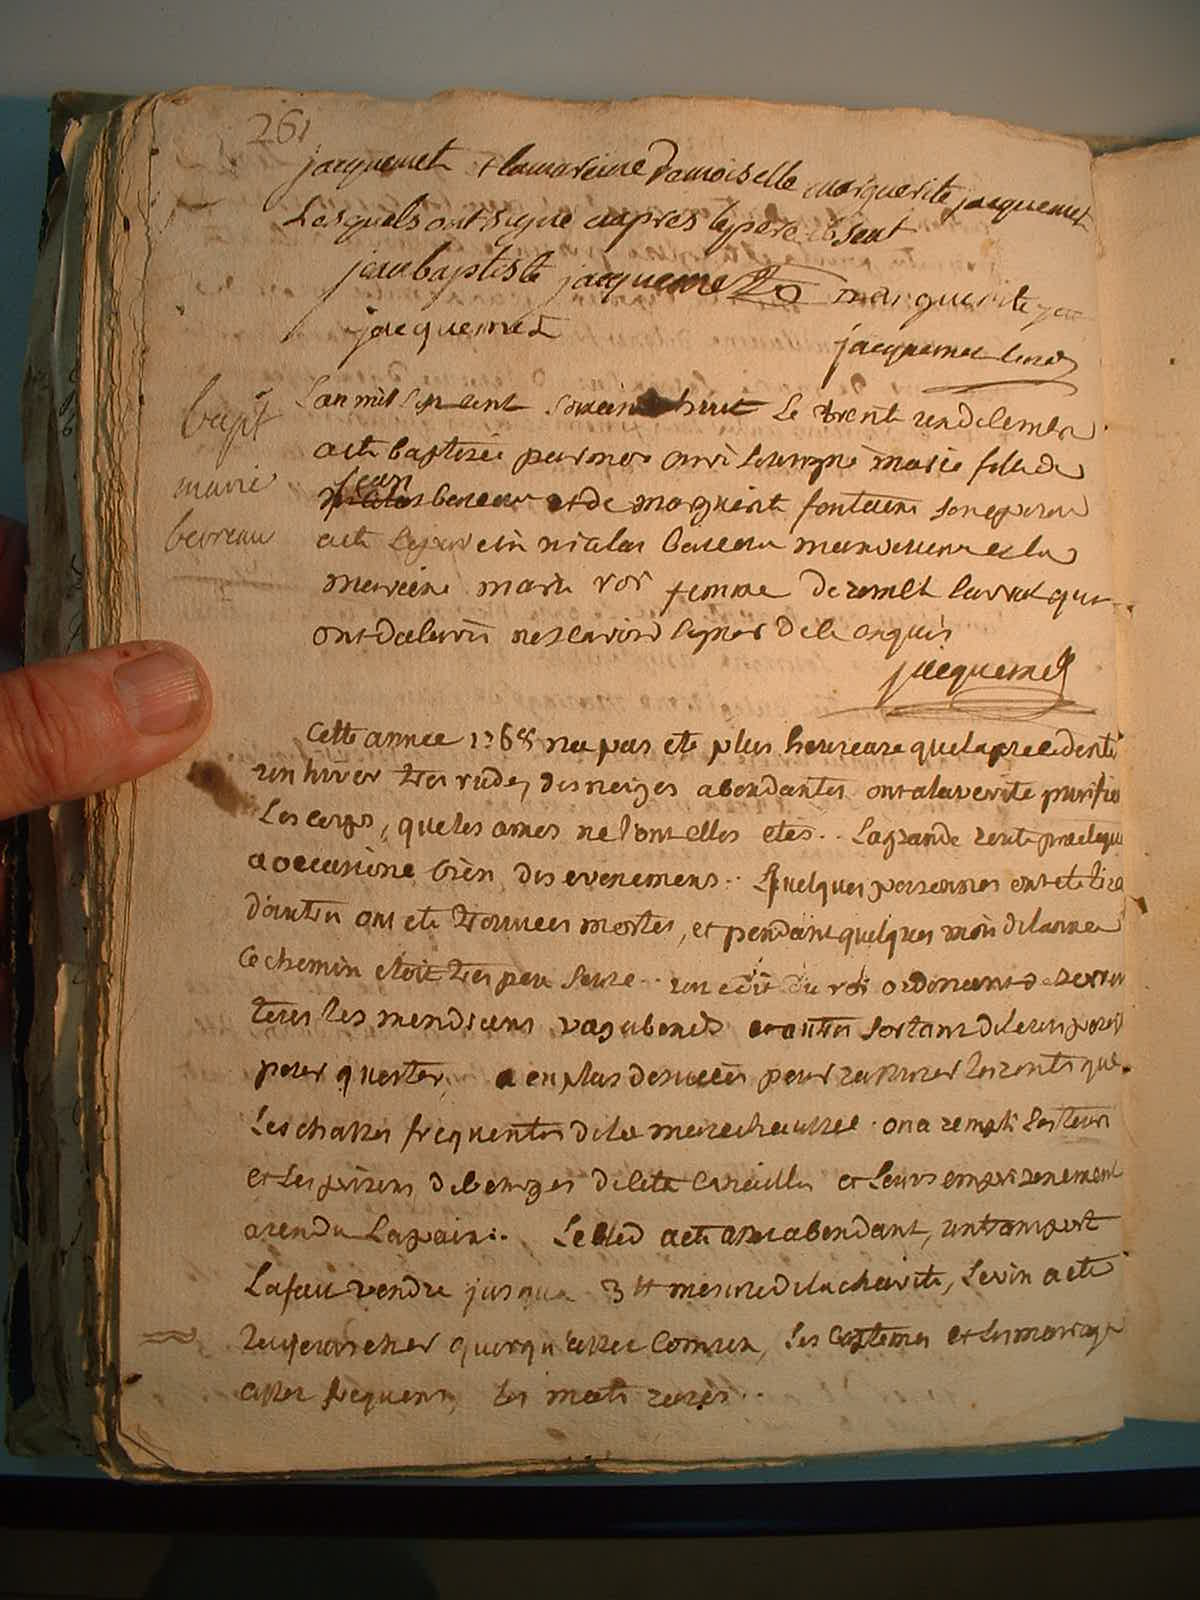 261
jacquemet & la mareine damoiselle marguerite jacquemet
Lesquels ont signe aupres le pere absent
jean baptiste jacquemet marguerite
jacquemet
jacquemet curé
bapt
marie
L'an mil sept cent soixante huit Le trente un decembre
a ete baptisée par moi curé soussigné marie fille de
jean et de marguerite fontaine son epouse
a ete Le parein nicolas manoeuvre et la
mareine marie femme de qui
ont declarés ne scavoir signer de ce enquis
jacquemet
Cette année 1768 na pas eté plus heureuse que la precedente
un hiver tres rude, des neiges abondantes ont a la verite purifié
Les corps, que les ames ne l'ont elles etés.. La grande route
a occasioné bien des evenemens.. Quelques personnes ont ete
d'autres ont eté trouvees mortes, et pendant quelques mois de l'année
Ce chemin etoit tres peu seure.. un edit du roi ordonant
tous les mendians vagabonds et autres sortant de leurs
pour quester, a eu plus de succès pour les routes que
Les chasses frequentes de la marechaussee. on a rempli les tours
et Les prisons de bourges de cete canaille et Leurs emprisonement
a rendu La paix. Le bled a eté assez abondant,
La fait vendre jusqua 3 ₶ mesure de la charité, Le vin a eté
toujours cher quoiqu'assez comun, Les baptemes et Les mariages
assez frequens, les morts rares..